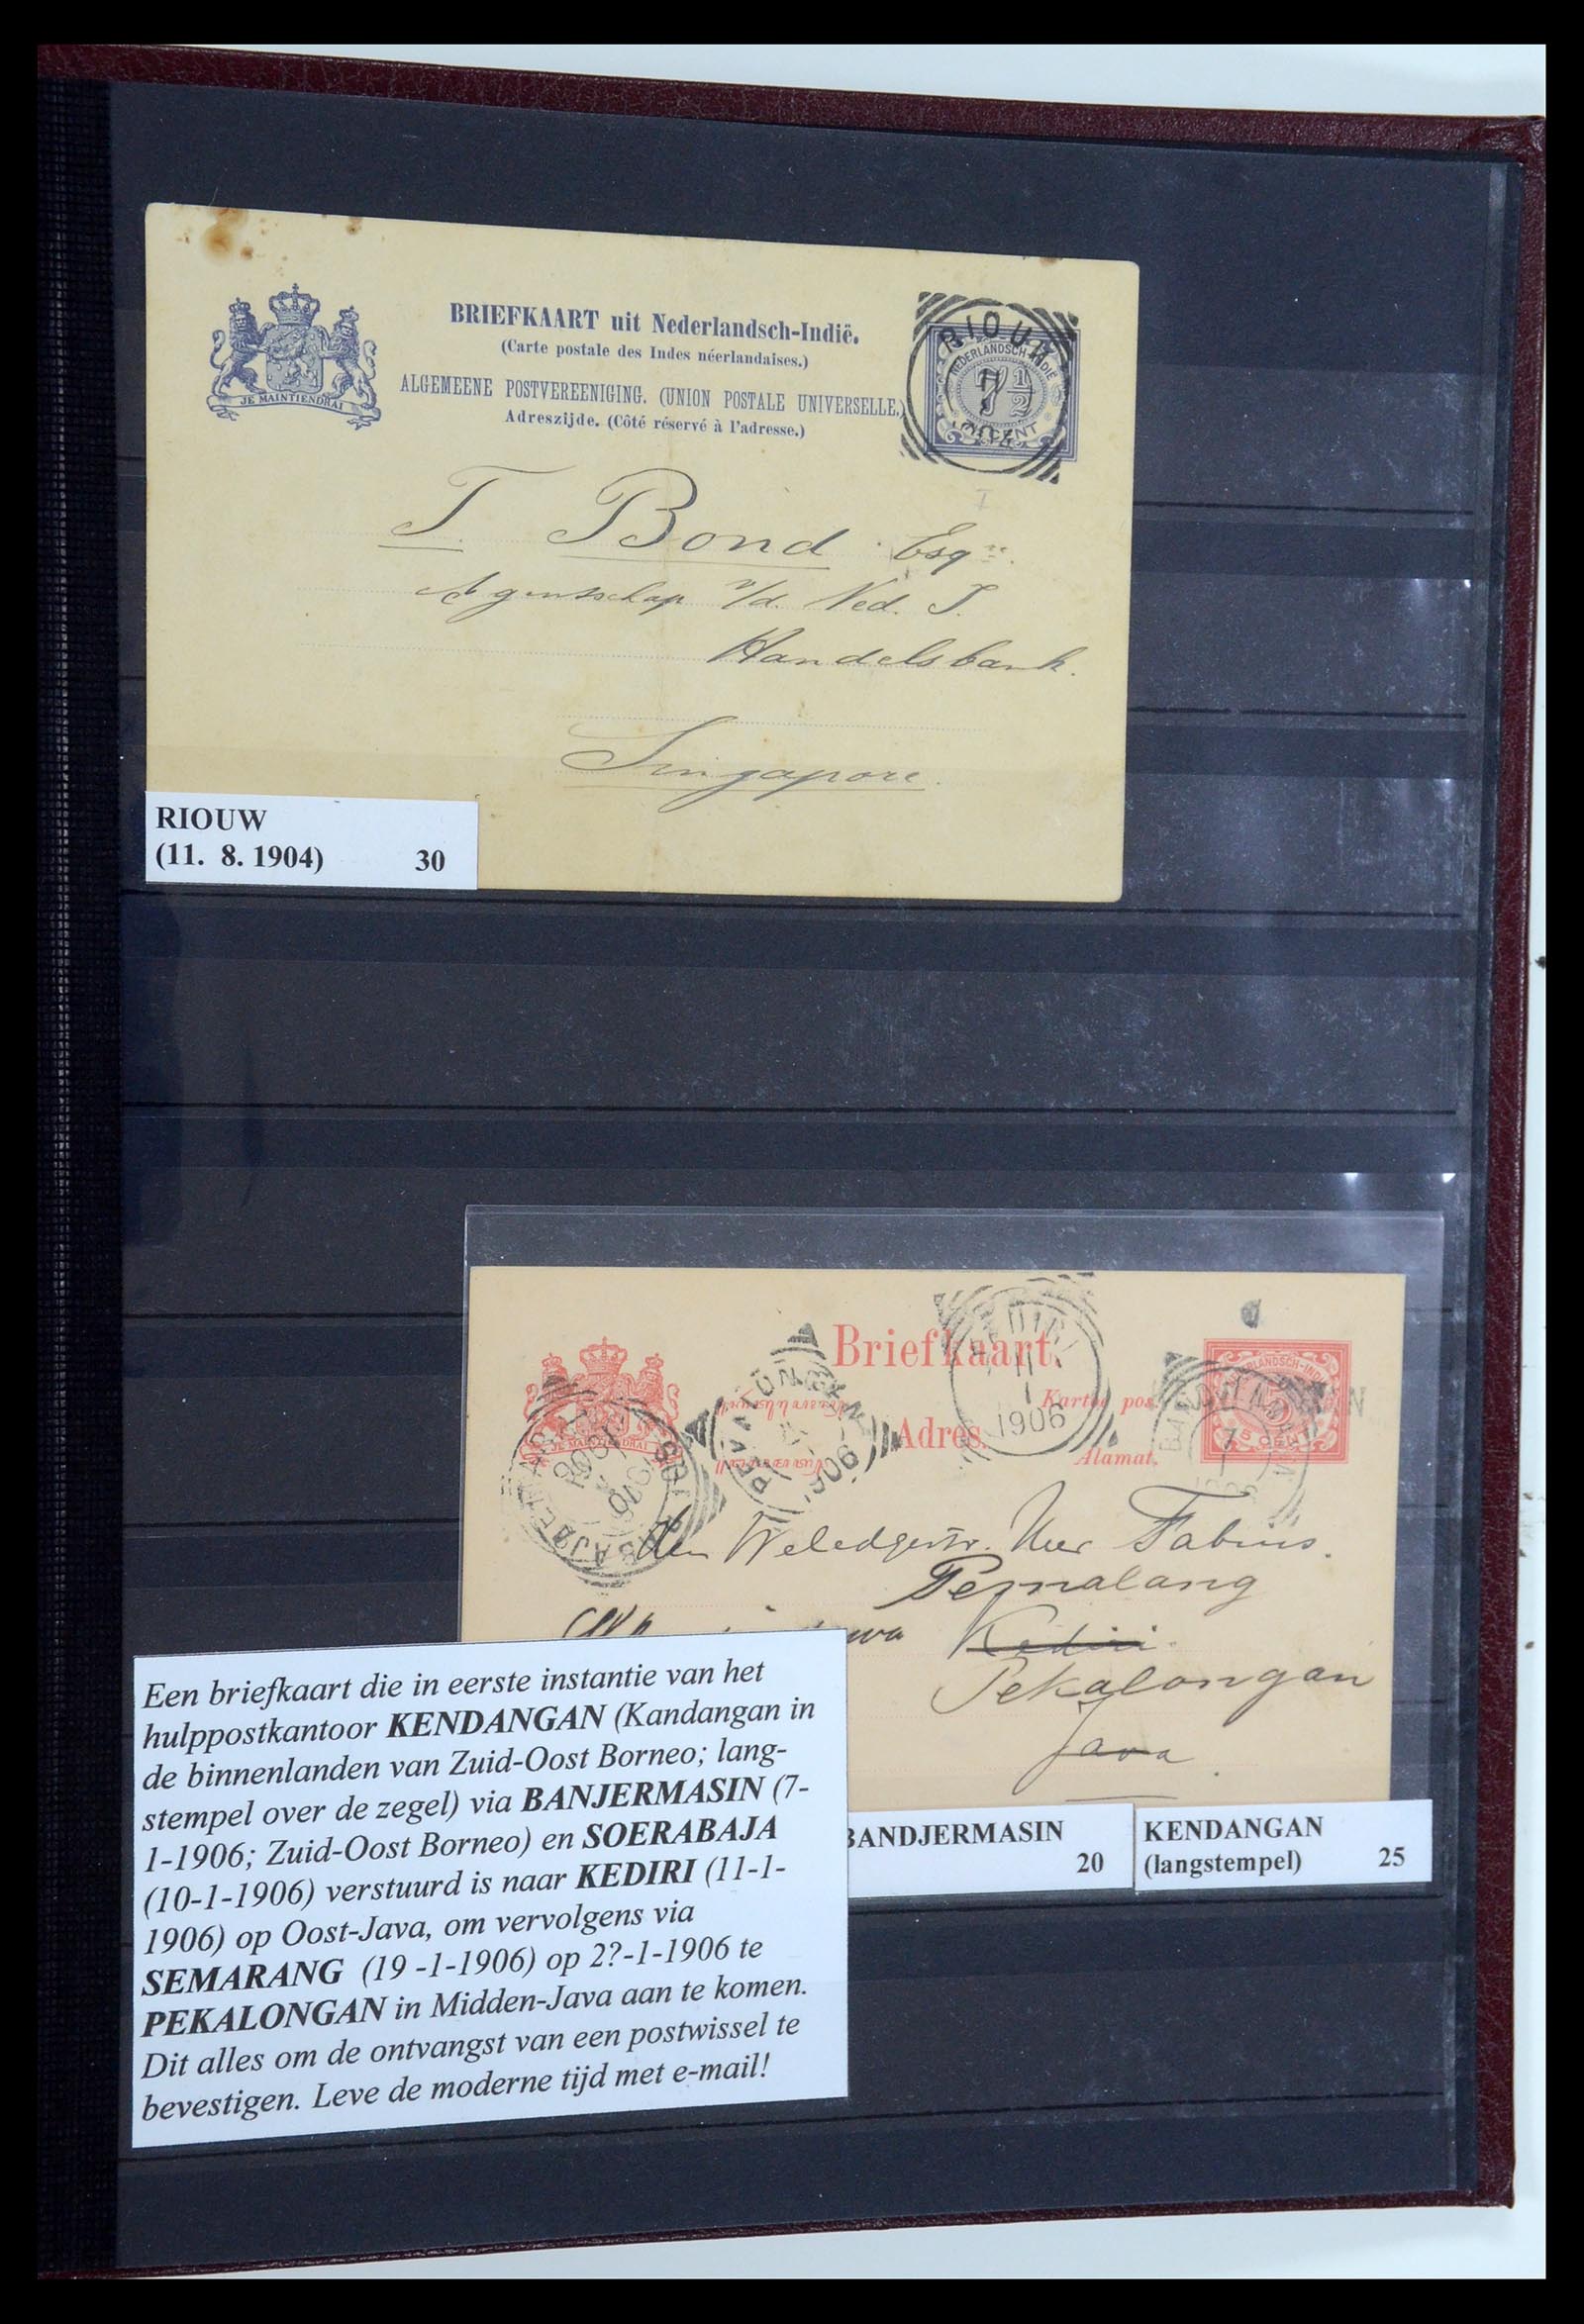 BRIEFKAART uit Nederlandsch-Indië.
(Carte postale des Indes néerlandaises.)
ALGEMEENE POSTVEREENIGING. (UNION POSTALE UNIVERSELLE.)
Adreszijde. (Côté réservé à l'adresse.)
JE MAINTIENDRAI
RIOUW
NEDERLANDSCH-INDIË
7½
CENT
T. Bond Esqre.
Agentschap v/d. Ned. I.
Handelsbank.
Singapore.
RIOUW
(11. 8. 1904) 30
Briefkaart.
Kartoe pos.
Adres.
Alamat.
JE MAINTIENDRAI
KEDIRI
11
1
1906
7
5 CENT
den Weledgestr. Heer Fabius.
Pemalang
Kediri.
Pekalongan
Java
Een briefkaart die in eerste instantie van het
hulppostkantoor KENDANGAN (Kandangan in
de binnenlanden van Zuid-Oost Borneo; lang-
stempel over de zegel) via BANJERMASIN (7-
1-1906; Zuid-Oost Borneo) en SOERABAJA
(10-1-1906) verstuurd is naar KEDIRI (11-1-
1906) op Oost-Java, om vervolgens via
SEMARANG (19 -1-1906) op 2?-1-1906 te
PEKALONGAN in Midden-Java aan te komen.
Dit alles om de ontvangst van een postwissel te
bevestigen. Leve de moderne tijd met e-mail!
BANDJERMASIN
20
KENDANGAN
(langstempel) 25